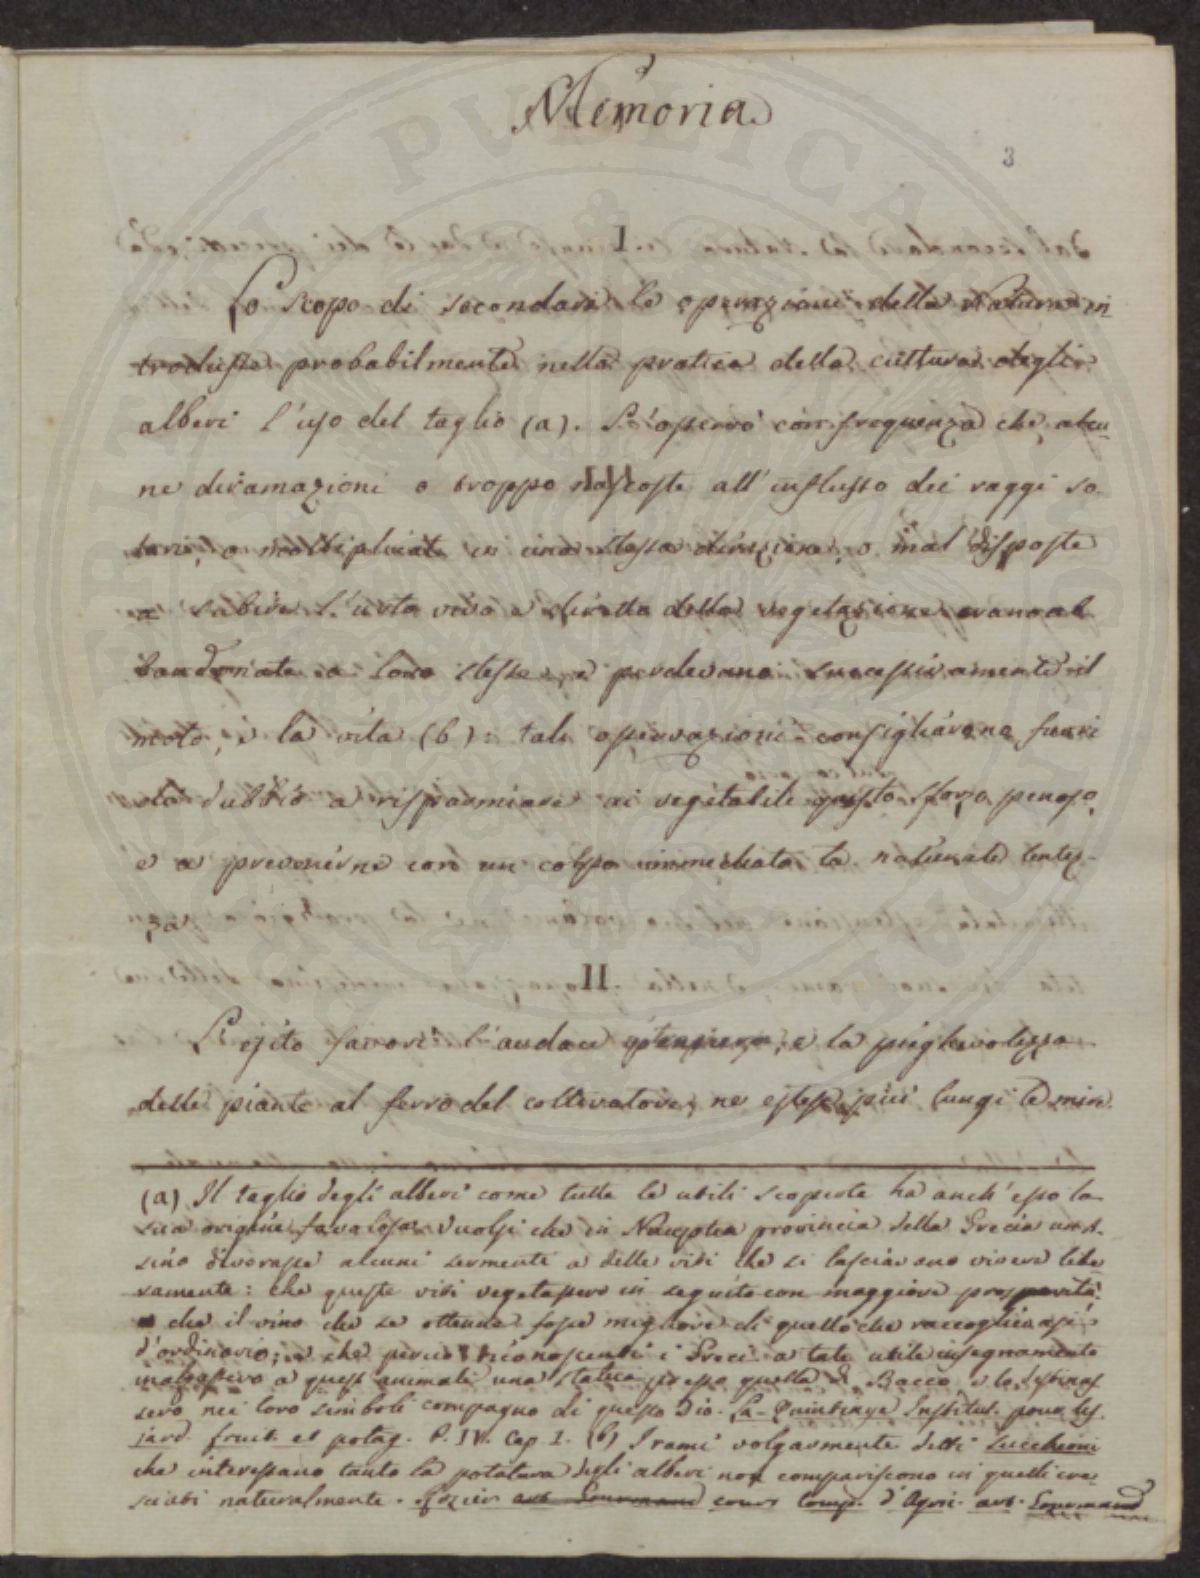 Memoria
3
I
Lo scopo di secondare le operazioni della Natura in
trodusse probabilmente nella pratica della cultura degli
alberi l'uso del taglio (a). S'osservò con frequenza che alcu-
ne diramazioni o troppo nascoste all'influsso dei raggi so
lari, o moltiplicate in una stessa direzione, o mal disposte
a subire l'urto vivo e diretto della vegetazione erano ab
bandonate a loro stesse, e perdevano successivamente il
moto, e la vita (b): tali osservazioni consigliarono fuori
di dubbio a risparmiare ai vegetabili questo sforzo penoso,
e a prevenirne con un colpo immediato la naturale lentez-
za.
II
L'esito favorì l'audace, e la pieghevolezza
delle piante al ferro del coltivatore, ne estese più lungi le mire.
(a) Il taglio degli alberi come tutte le utili scoperte ha anch'esso la
sua origine favolosa. Vuolsi che in Nauplia provincia della Grecia un A-
sino divorasse alcuni sermenti a delle viti che si lasciavano vivere libe
ramente: che queste viti vegetassero in seguito con maggiore prosperità:
e che il vino che se ottenne fosse migliore di quello che raccoglievasi
d'ordinario; e che perciò riconoscenti i Greci a tale utile insegnamento
inalzassero a quest'animale una statua presso quella di Bacco, e lo destinas
sero nei loro simboli compagno di questo Dio. La-Quintinye Institut. pour les
jard. fruit. et potag. P. IV. Cap I. (b) I rami volgarmente detti Succhioni
che interessano tanto la potatura degli alberi non compariscono in quelli cre-
sciuti naturalmente. Rozier art Gourmand cours Comp. d'Agri. art. Gourmand